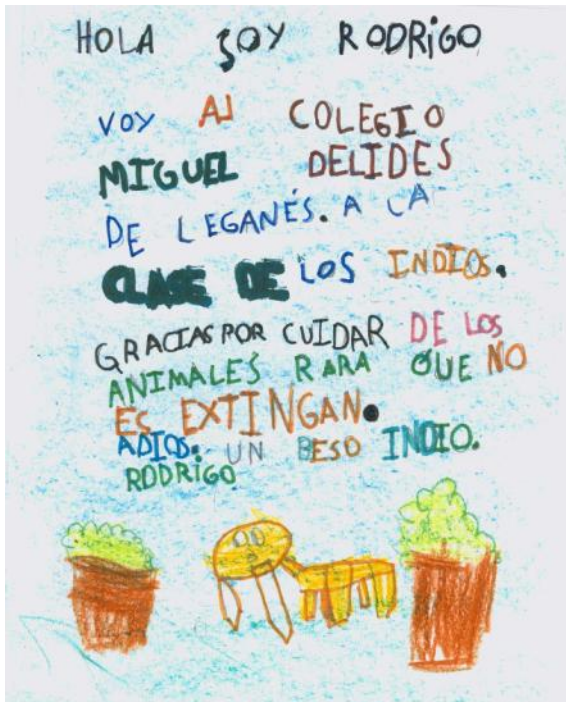 HOLA SOY RODRIGO
VOY AL COLEGIO
MIGUEL DELIDES
DE LEGANÉS. A LA
CLASE DE LOS INDIOS.
GRACIAS POR CUIDAR DE LOS
ANIMALES RARA QUE NO
ES EXTINGAN.
ADIOS. UN BESO INDIO.
RODRIGO